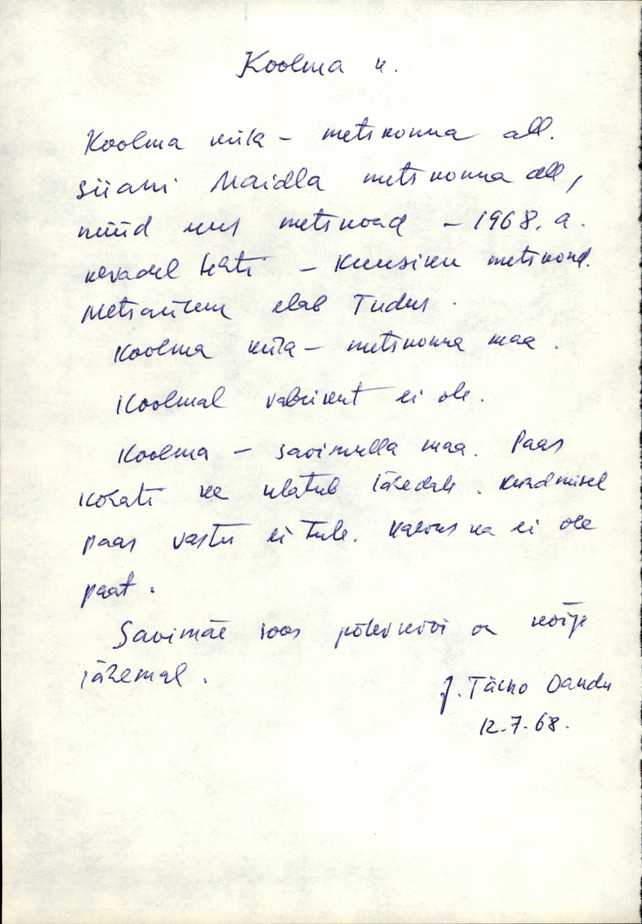 Koolma k.
Koolma küla – metskonna all.
Siiani Maidla metskonna all,
nüüd uus metskond – 1968. a.
kevadel tehti – Kuusiku metskond.
Metsaülem elab Tudus.
Koolma küla – metskonna maa.
Koolmal vabrikut ei ole.
Koolma – savimulla maa. Paas
kohati ka ulatub lähedale. Kündmisel
paas vastu ei tule. Kaevus ka ei ole
paat.
Savimäe soos põlevkivi on kõige
lähemal.
J. Tächo Oandu
12.7.68.